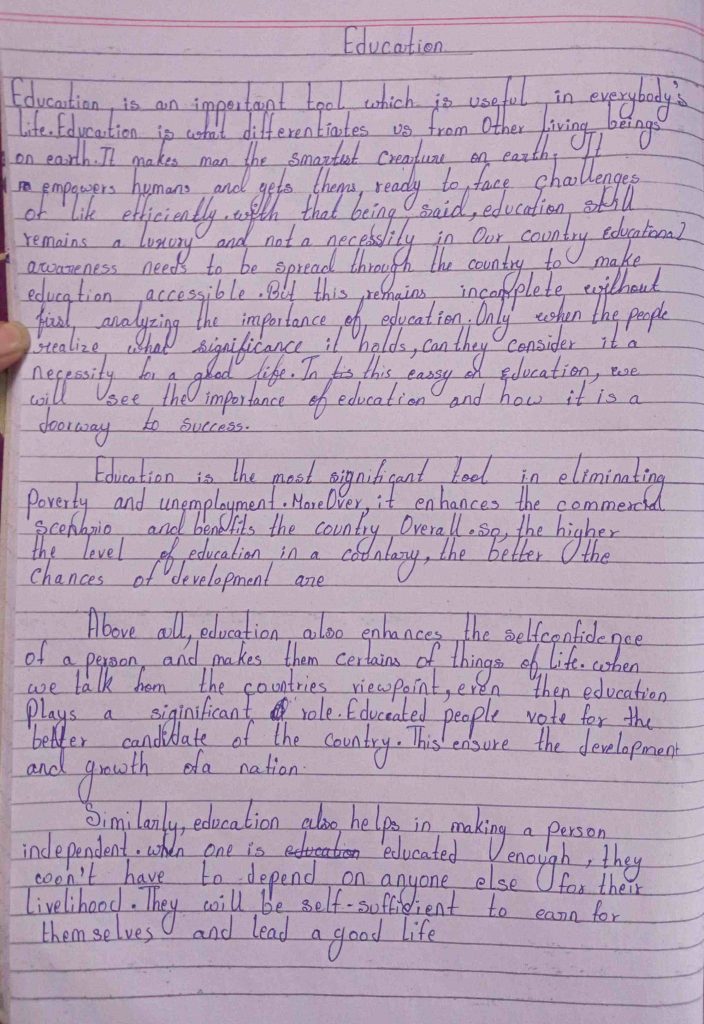 Education
Education is an important tool which is useful in everybody's
life. Education is what differentiates us from Other living beings
on earth. It makes man the smartest creature on earth. It
empowers humans and gets them, ready to face challenges
of life efficiently. with that being said, education still
remains a luxury and not a necessity in Our country Educational
awareness needs to be spread through the country to make
education accessible. But this remains incomplete without
first analyzing the importance of education. Only when the people
realize what significance it holds, can they consider it a
necessity for a good life. In this eassy on Education, we
will see the importance of education and how it is a
doorway to success.
Education is the most significant tool in eliminating
Poverty and unemployment. MoreOver, it enhances the commercial
scenario and benefits the country Overall. So, the higher
the level of education in a country, the better the
Chances of development are
Above all, education also enhances the selfconfidence
of a person and makes them certains of things of life. when
we talk from the countries viewpoint, even then education
Plays a siginificant role. Educated people vote for the
better candidate of the country. This ensure the development
and growth of a nation.
Similarly, education also helps in making a person
independent. when one is education educated enough, they
won't have to depend on anyone else for their
livelihood. They will be self-sufficient to earn for
themselves and lead a good life